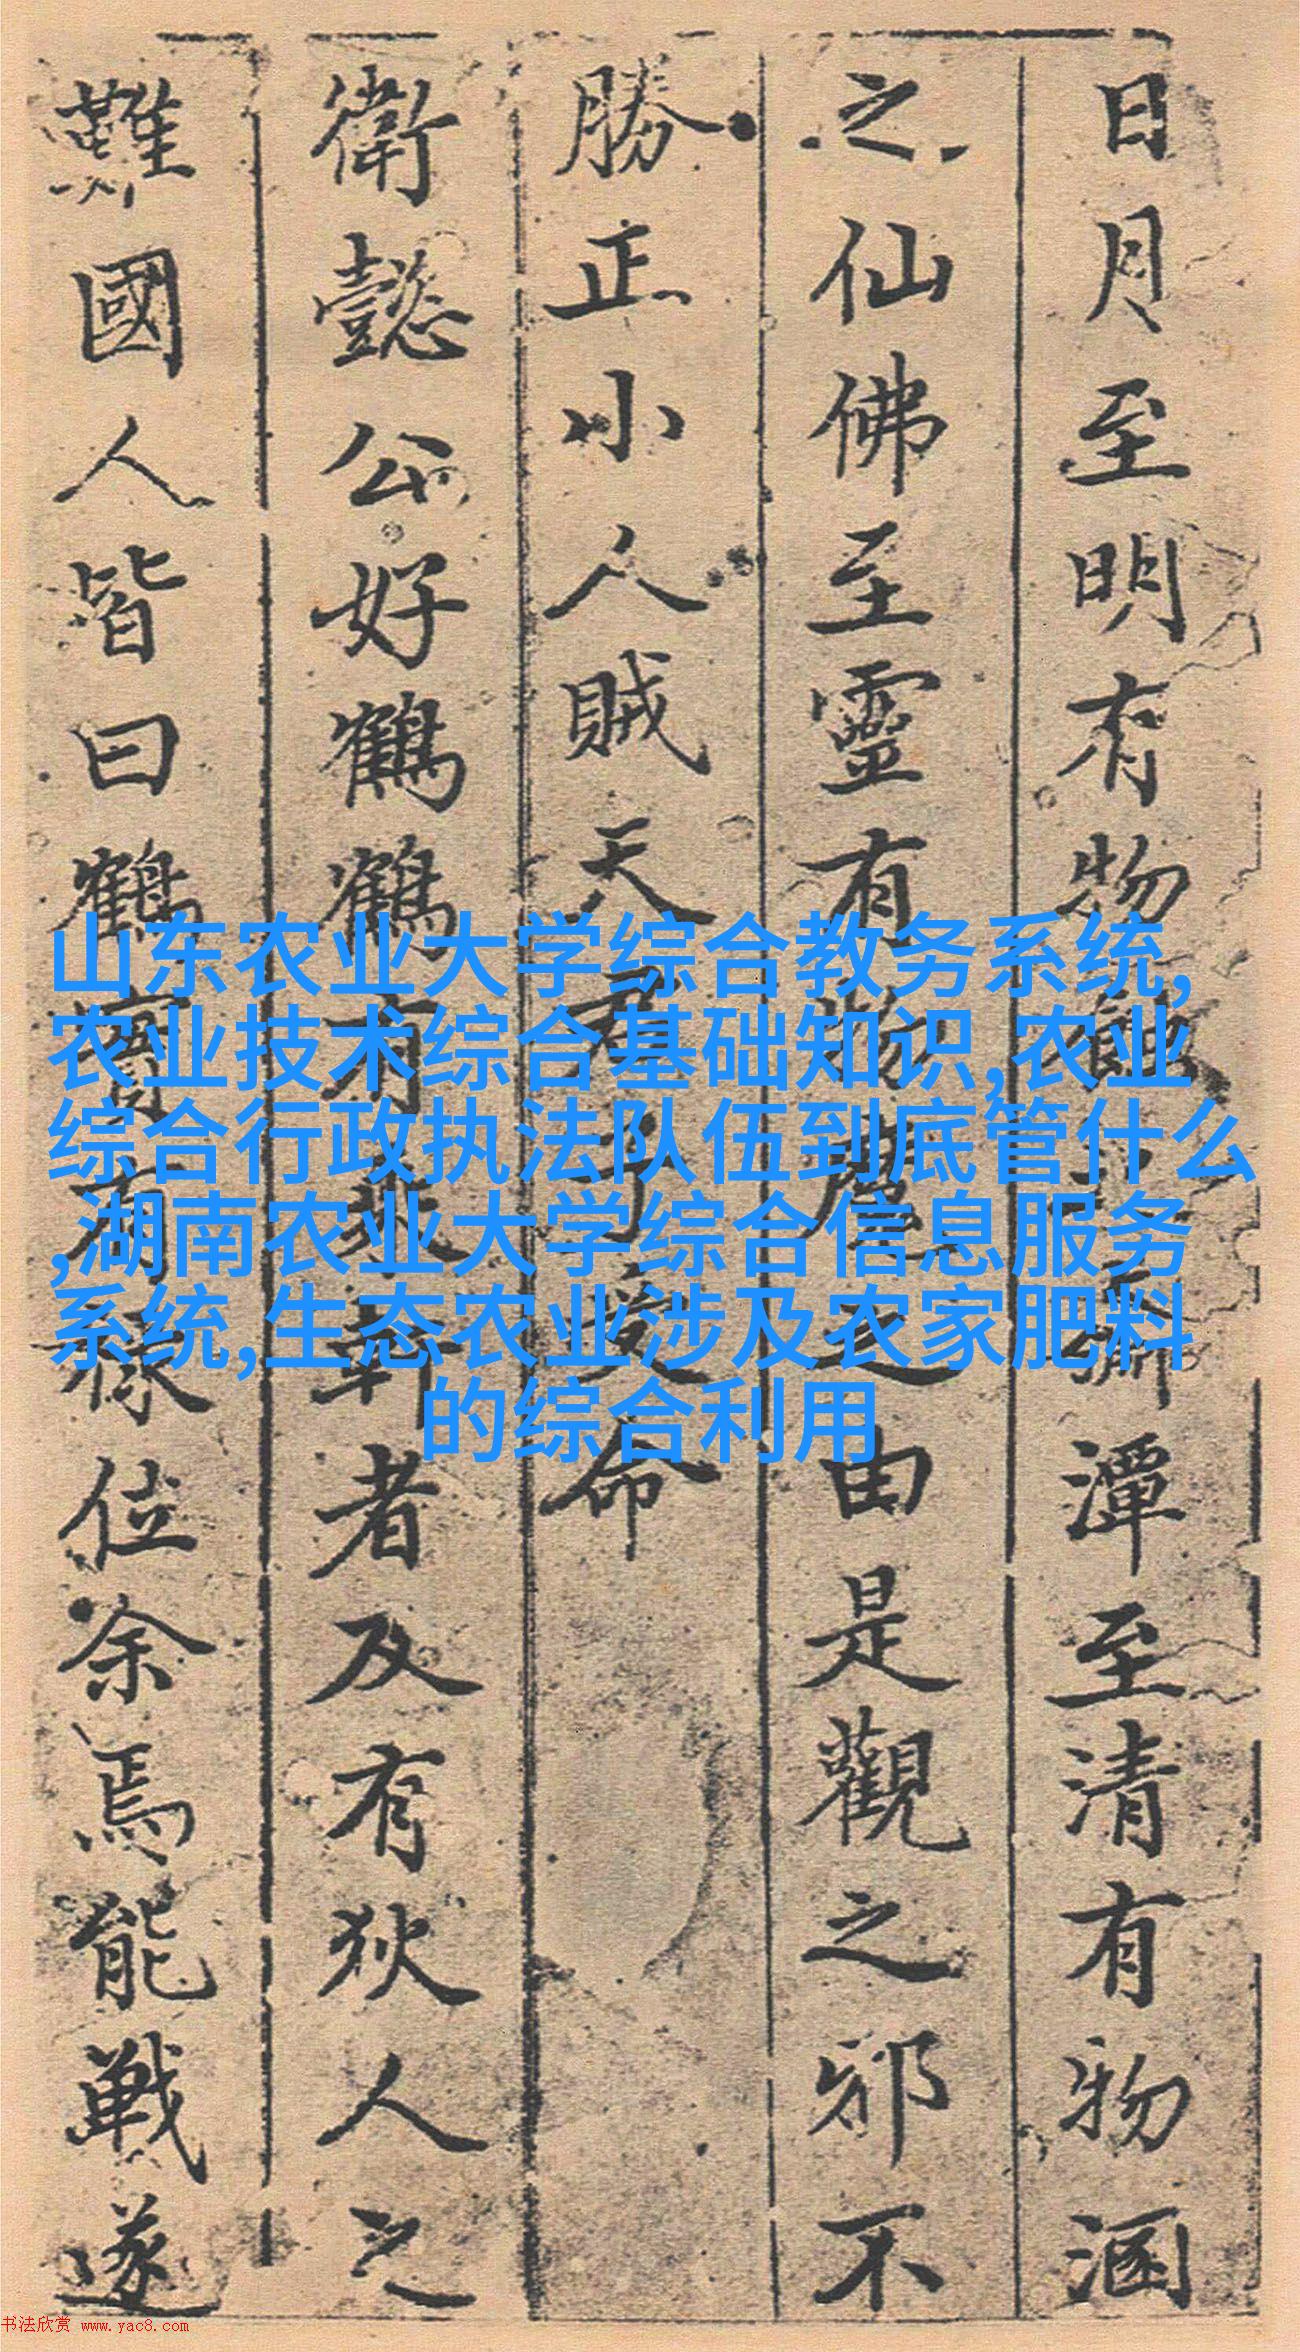 日月至明有物潭至清有物涵
之仙佛至靈有物魔之由是觀之邪不
勝正小人賊天君子受命
衛懿公好鶴鶴有乘軒者及有狄人之
難國人皆曰鶴有祿位余焉能戰遂
山东农业大学综合教务系统,
农业技术综合基础知识,农业
综合行政执法队伍到底管什么
,湖南农业大学综合信息服务
系统,生态农业涉及农家肥料
的综合利用
书法欣赏 www.yac8.com